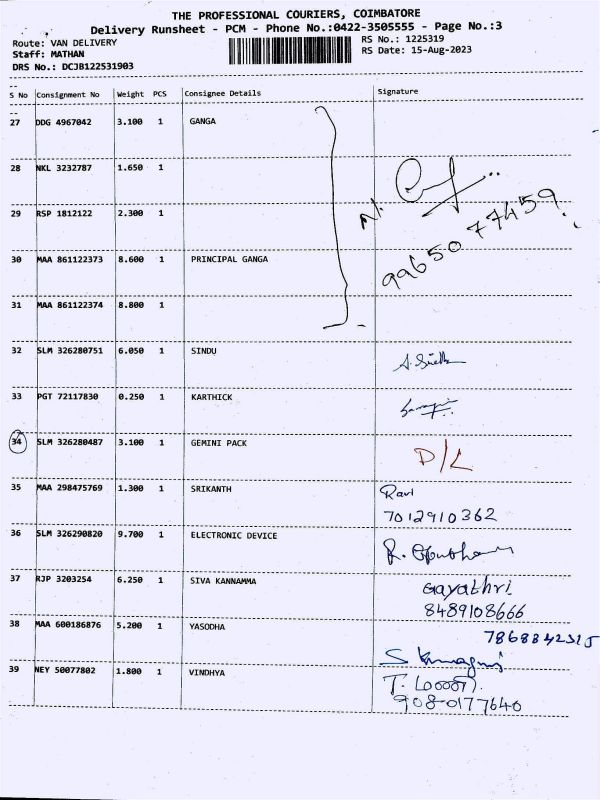 THE PROFESSIONAL COURIERS, COIMBATORE
Delivery Runsheet - PCM - Phone No.:0422-3505555 - Page No.:3
Route: VAN DELIVERY RS No.: 1225319
Staff: MATHAN RS Date: 15-Aug-2023
DRS No.: DCJB122531903
S No Consignment No Weight PCS Consignee Details Signature
27 DDG 4967042 3.100 1 GANGA
28 NKL 3232787 1.650 1
29 RSP 1812122 2.300 1
9965077459
30 MAA 861122373 8.600 1 PRINCIPAL GANGA
31 MAA 861122374 8.800 1
32 SLM 326280751 6.050 1 SINDU
33 PGT 72117830 0.250 1 KARTHICK
34 SLM 326280487 3.100 1 GEMINI PACK D/L
35 MAA 298475769 1.300 1 SRIKANTH Ravi
7012910362
36 SLM 326290820 9.700 1 ELECTRONIC DEVICE
37 RJP 3203254 6.250 1 SIVA KANNAMMA Gayathri
8489108666
38 MAA 600186876 5.200 1 YASODHA 7868842315
39 NEY 50077802 1.800 1 VINDHYA
908-0177640